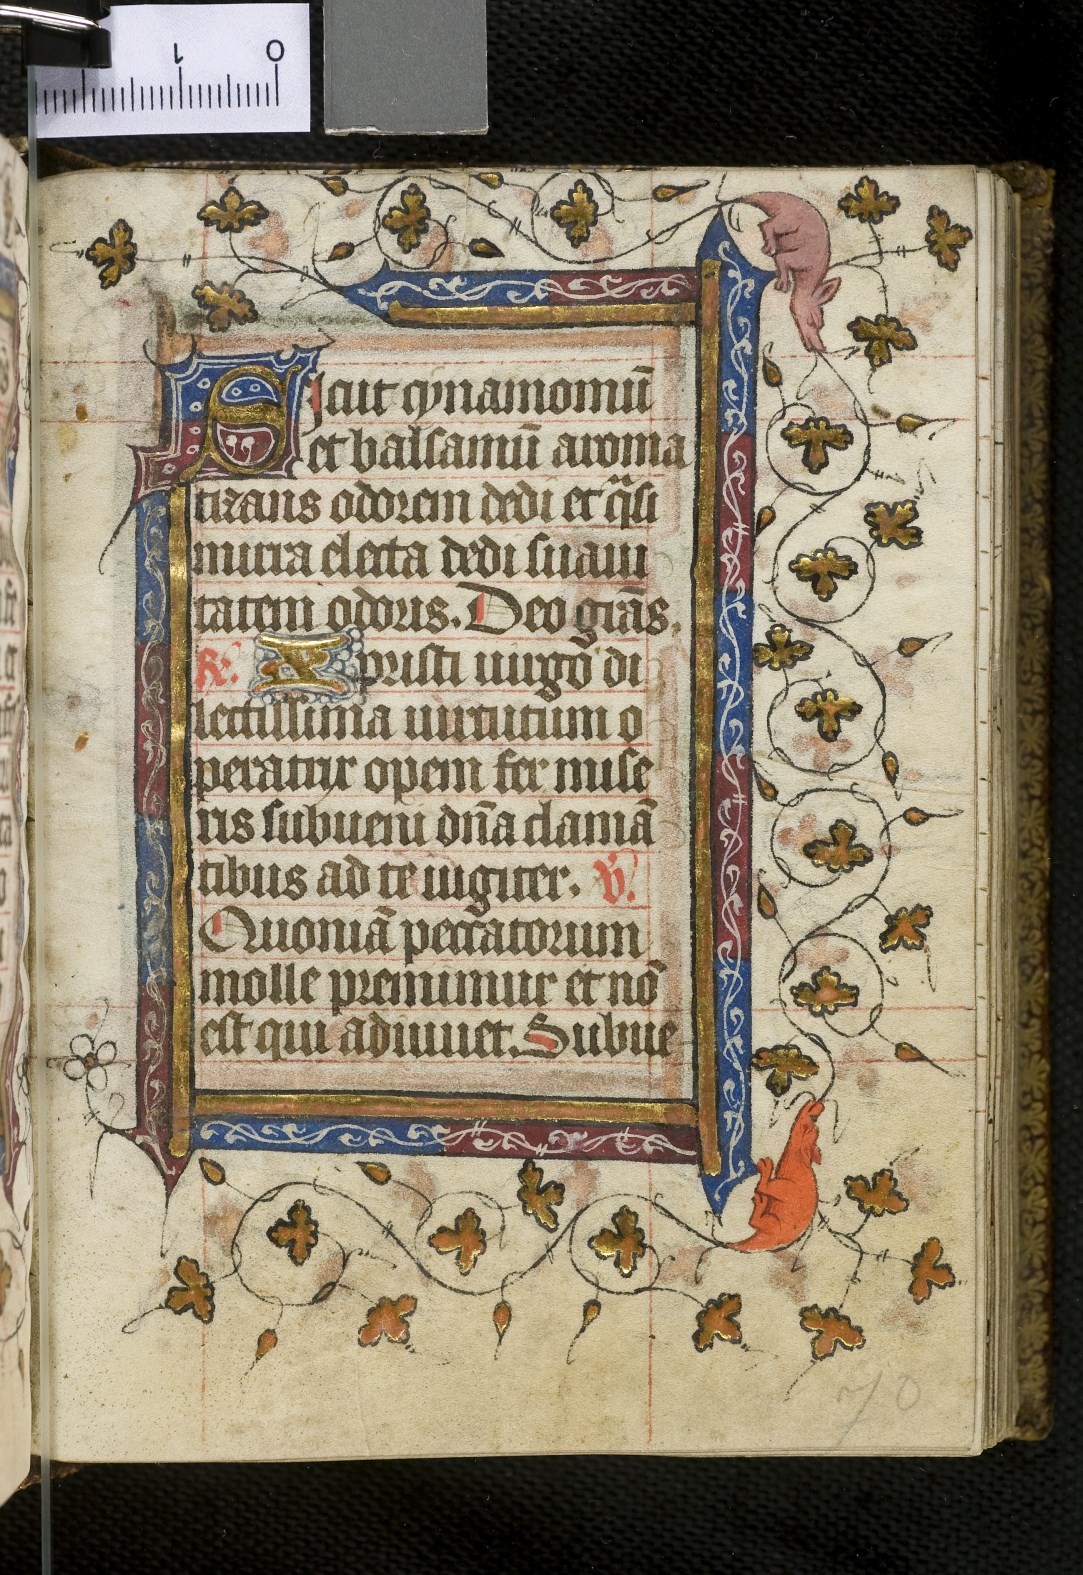 1 0
Sicut cynamomū
et balsamū aroma
tizans odorem dedi et q̄si
mirra electa dedi suaui
tatem odoris. Deo grās.
R. Xpristi uirgo di
lectissima uirtutum o
peratrix opem fer mise
ris subueni dn̄a clamā
tibus ad te iugiter. V.
Quoniā peccatorum
molle premimur et nō
est qui adiuuet. Subue
70